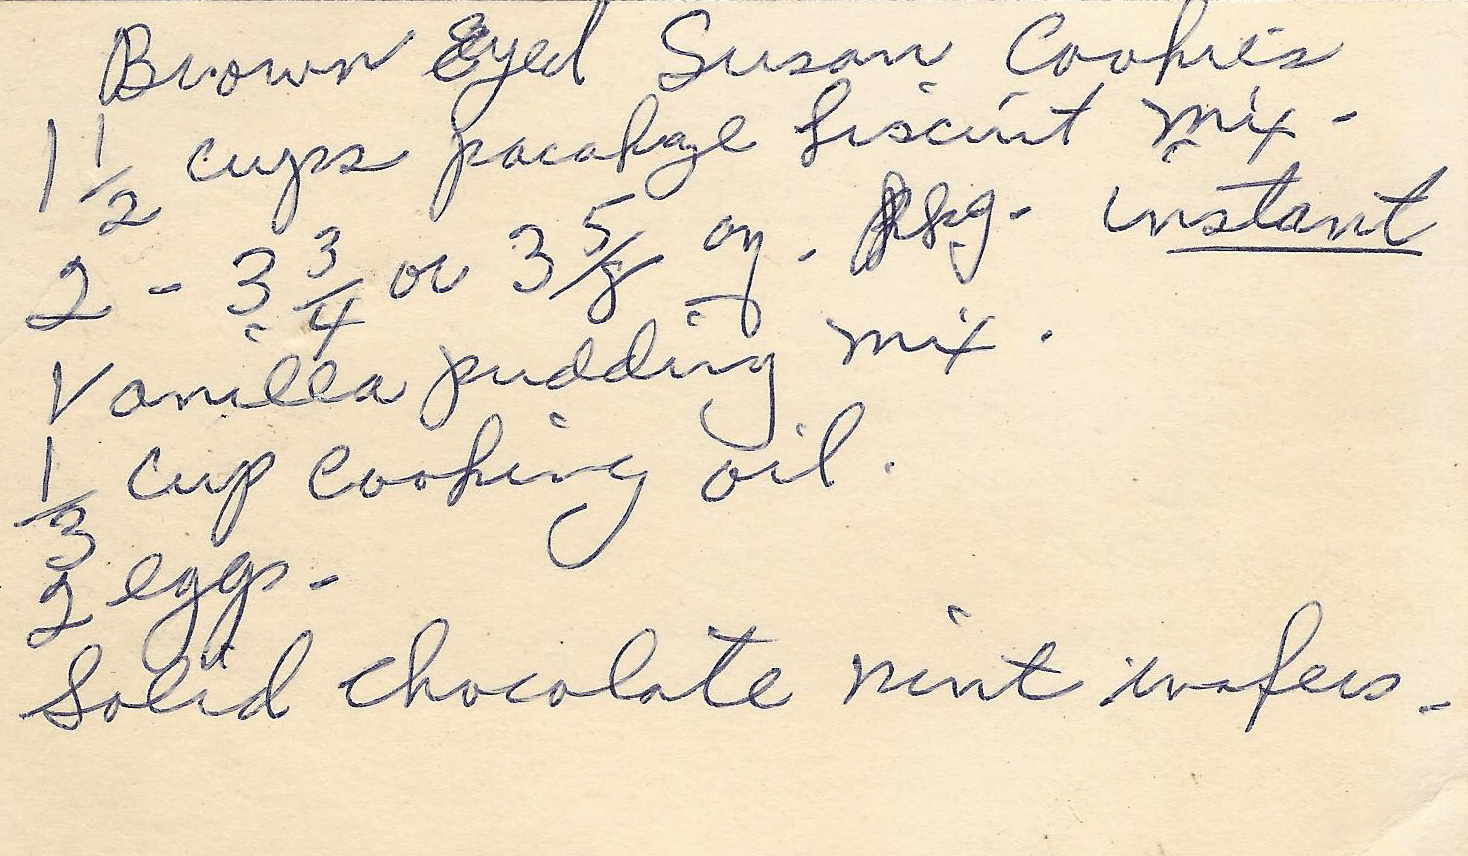 Brown Eyed Susan Cookies
1 1/2 cups package biscuit mix -
2 - 3 3/4 or 3 5/8 oz. pkg. instant
Vanilla pudding mix.
1/3 cup cooking oil.
2 eggs -
Solid chocolate mint wafers -